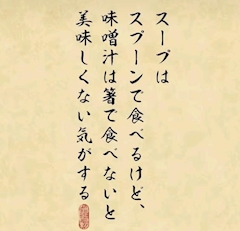 スープは
スプーンで食べるけど、
味噌汁は箸で食べないと
美味しくない気がする